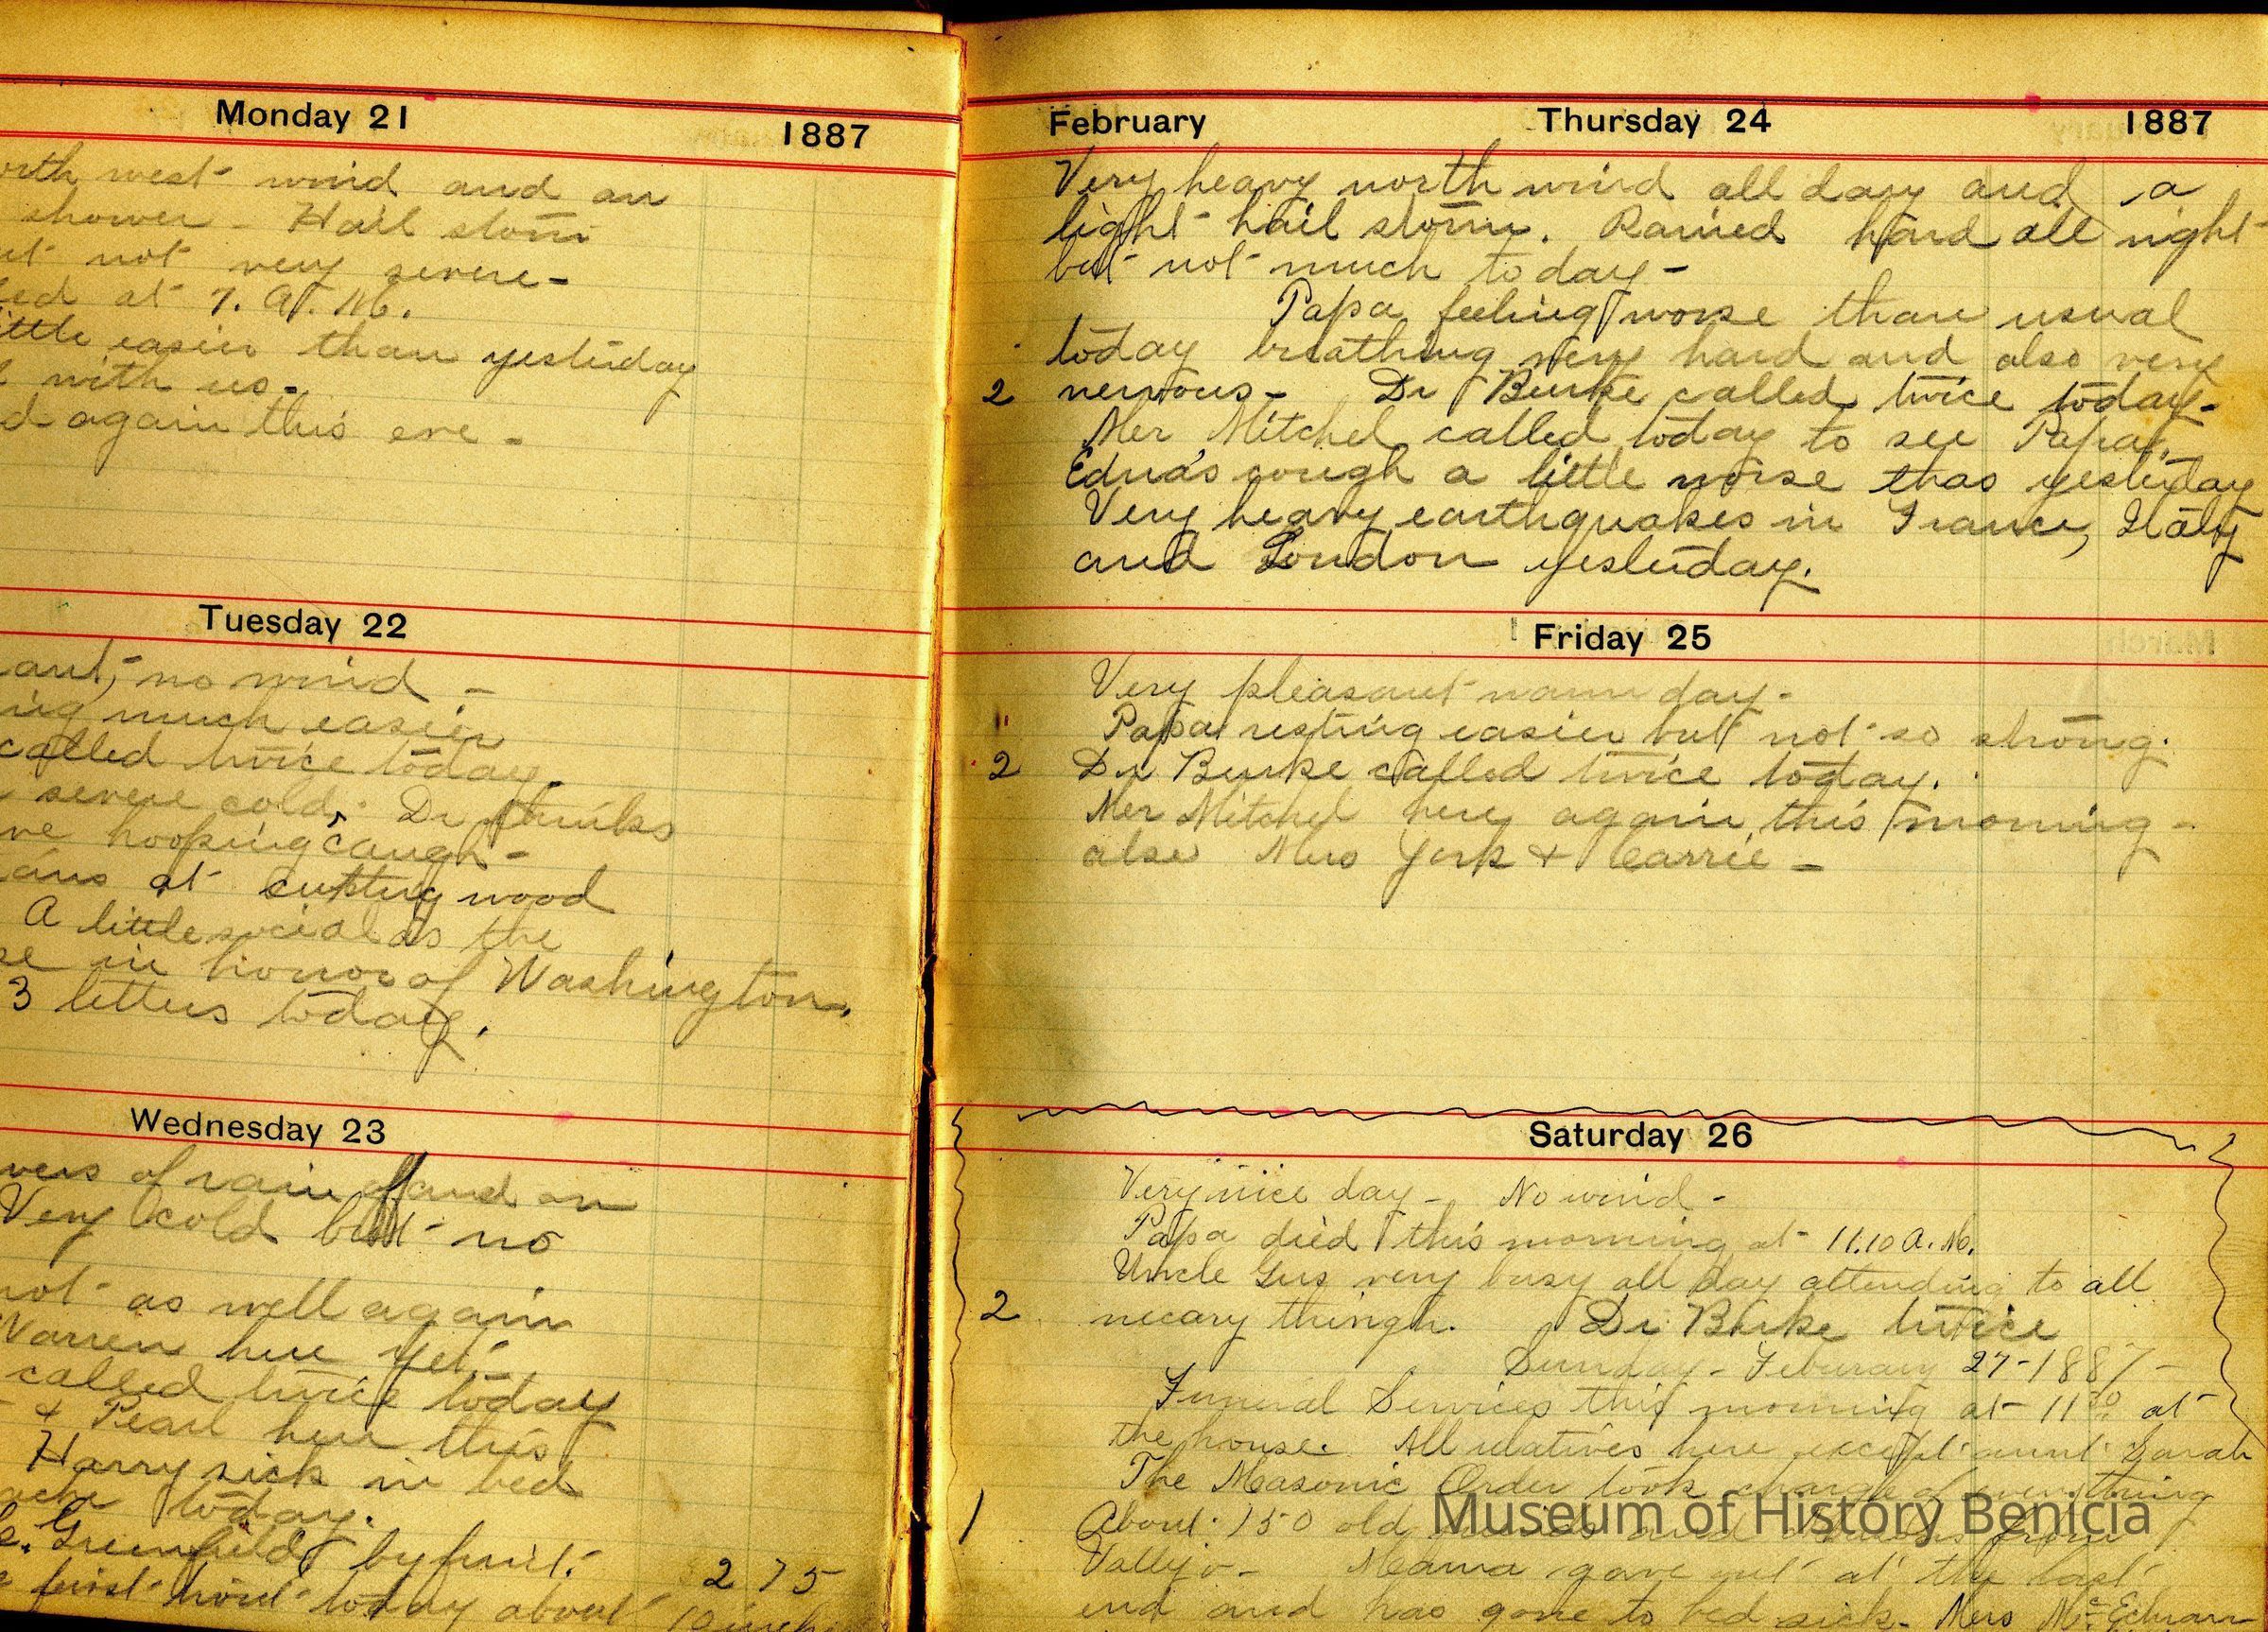 Monday 21
1887
orth west wind and an
shower - Hail storm
ut not very severe -
ed at 7. A. M.
ittle easier than yesterday
with us -
d again this eve -
Tuesday 22
ant, no wind -
ing much easier
called twice today.
severe cold. Dr thinks
ve hooping caugh -
at cutting wood
A little social as the
se in honor of Washington.
3 letters today.
Wednesday 23
wers of rain off and on
Very cold but no
not as well again
Warren here yet.
called twice today
& Pearl here this
Harry sick in bed
ache today.
Greenfield by fruit.
2 75
first today about
February
Thursday 24
1887
Very heavy north wind all day and a
light hail storm. Rained hard all night
but not much today -
Papa feeling worse than usual
today breathing very hard and also very
2 nervous - Dr Burke called twice today -
Mer Mitchel called today to see Papa.
Edna's cough a little worse thas yesterday
Very heavy earthquakes in France, Italy
and London yesterday.
Friday 25
Very pleasant warm day -
" Papa resting easier but not so strong.
2 Dr Burke called twice today.
Mer Mitchel here again this morning -
also Mrs York & Carrie -
Saturday 26
Very nice day - No wind -
Papa died this morning at 11.10 A. M.
Uncle Gus very busy all day attending to all
2 necary things. Dr Burke twice
Sunday - Feburary 27 - 1887 -
Funeral Services this morning at 11 at
the house. All relatives here except aunt Sarah
The Masonic Order took charge of everything
1 About 150 old and from
Vallejo - Mama gave out at the last
end and has gone to bed sick - Mers
Museum of History Benicia